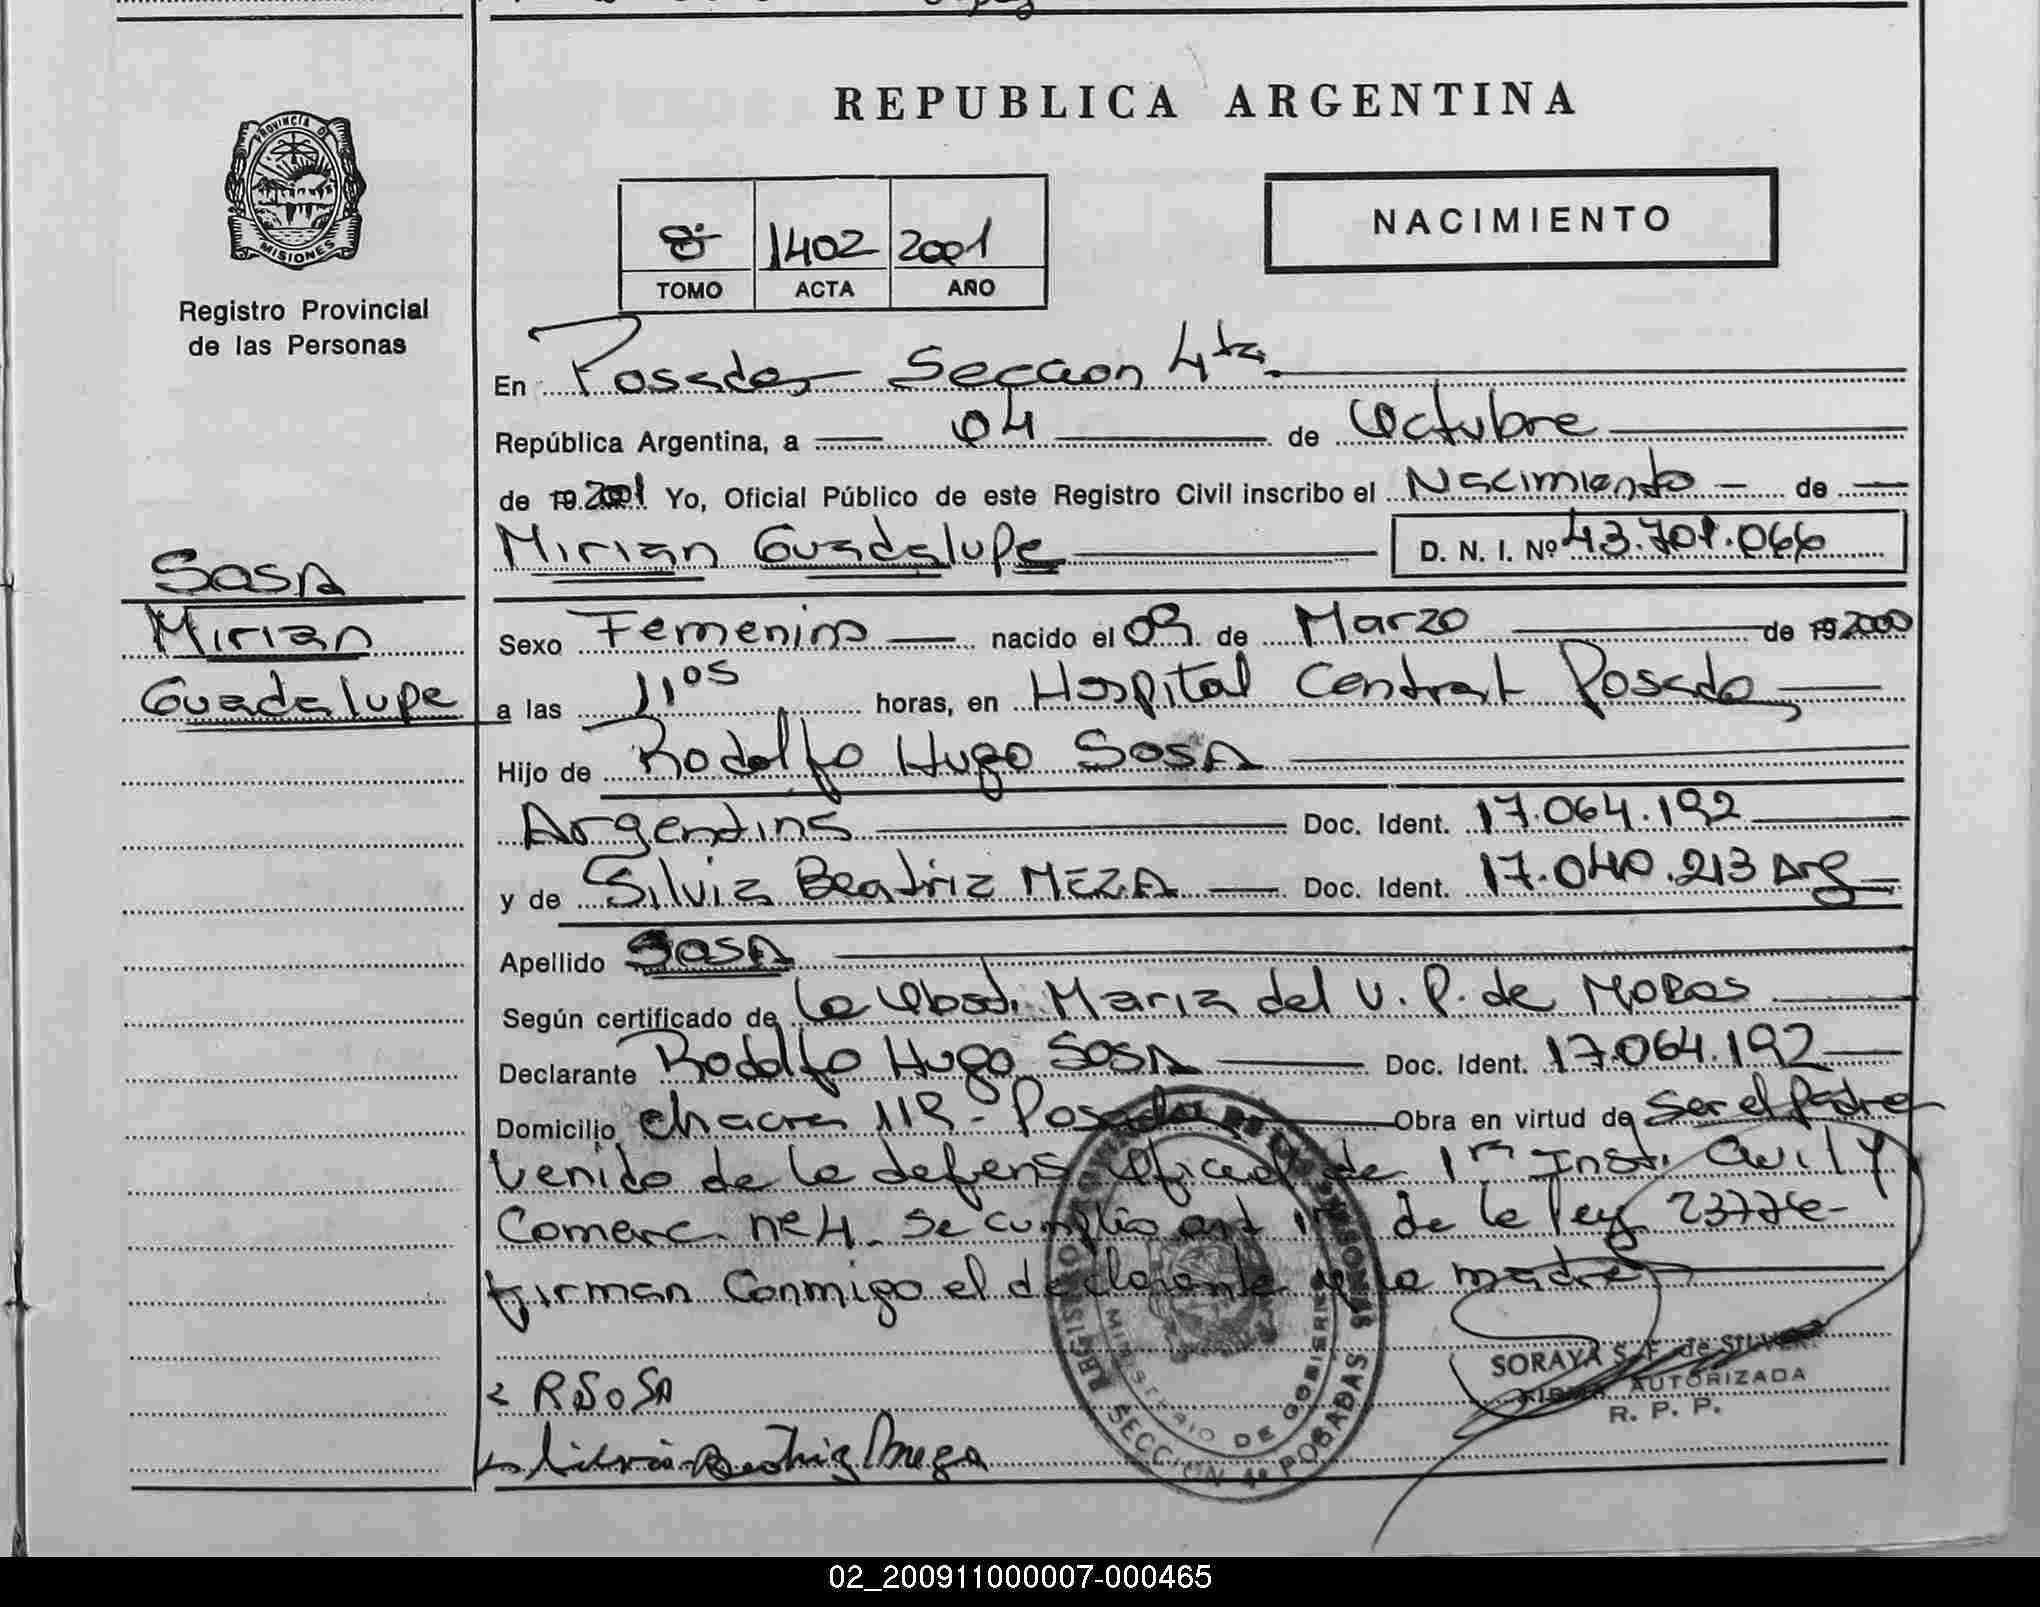 REPUBLICA ARGENTINA
PROVINCIA DE
MISIONES
Registro Provincial
de las Personas
8º 1402 2001
TOMO ACTA AÑO
NACIMIENTO
En Posadas Seccion 4ta.
República Argentina, a 04 de Octubre
de 19 2001 Yo, Oficial Público de este Registro Civil inscribo el Nacimiento de
Mirian Guadalupe D. N. I. Nº 43.701.066
SOSA
Mirian
Guadalupe
Sexo Femenino nacido el 09 de Marzo de 19 2000
a las 11 05 horas, en Hospital Central Posadas
Hijo de Rodolfo Hugo SOSA
Argentina Doc. Ident. 17.064.192
y de Silvia Beatriz MEZA Doc. Ident. 17.040.213 Arg
Apellido SOSA
Según certificado de la Obst. Maria del V. P. de MORAS
Declarante Rodolfo Hugo SOSA Doc. Ident. 17.064.192
Domicilio chacra 119 - Posadas Obra en virtud de ser el Padre
venido de la defens oficial de 1ra Inst. Civil y
Comerc. nº 4. Se cumplio art de la ley
firman conmigo el declarante y la madre
R SOSA
Silvia Beatriz Meza
MINISTERIO DE GOBIERNO
SECCION 4ª POSADAS
SORAYA S. F. de SILVERA
FIRMA AUTORIZADA
R. P. P.
02_200911000007-000465